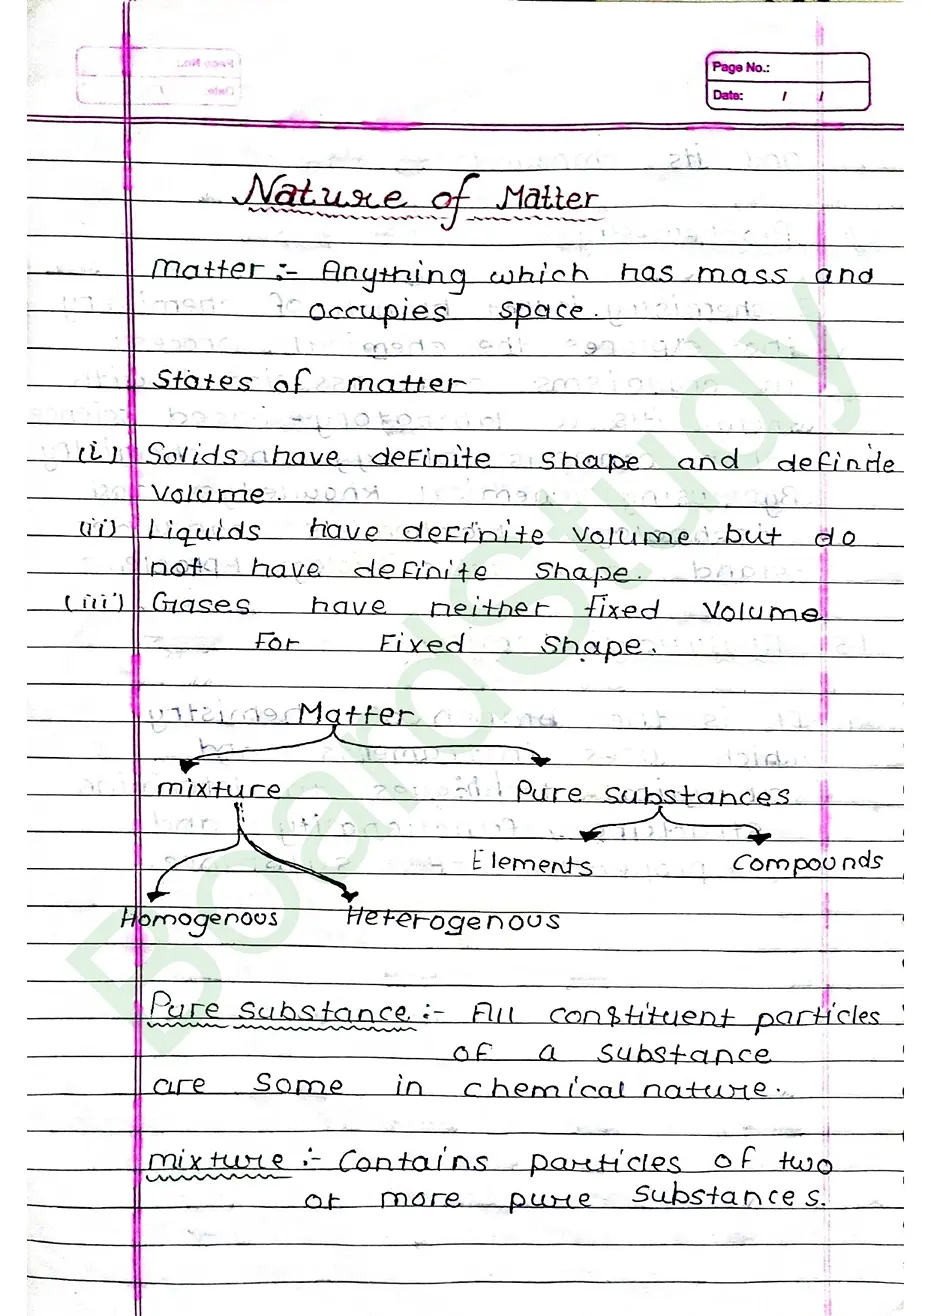 Page No.:
Date: / /
Nature of Matter
Matter :- Anything which has mass and
occupies space.
States of matter
(i) Solids have definite shape and definite
volume.
(ii) Liquids have definite volume but do
not have definite shape.
(iii) Gases have neither fixed volume
for fixed shape.
Matter
mixture Pure substances
Elements Compounds
Homogenous Heterogenous
Pure substance :- All constituent particles
of a substance
are some in chemical nature.
mixture :- Contains particles of two
or more pure substances.
BoardStudy